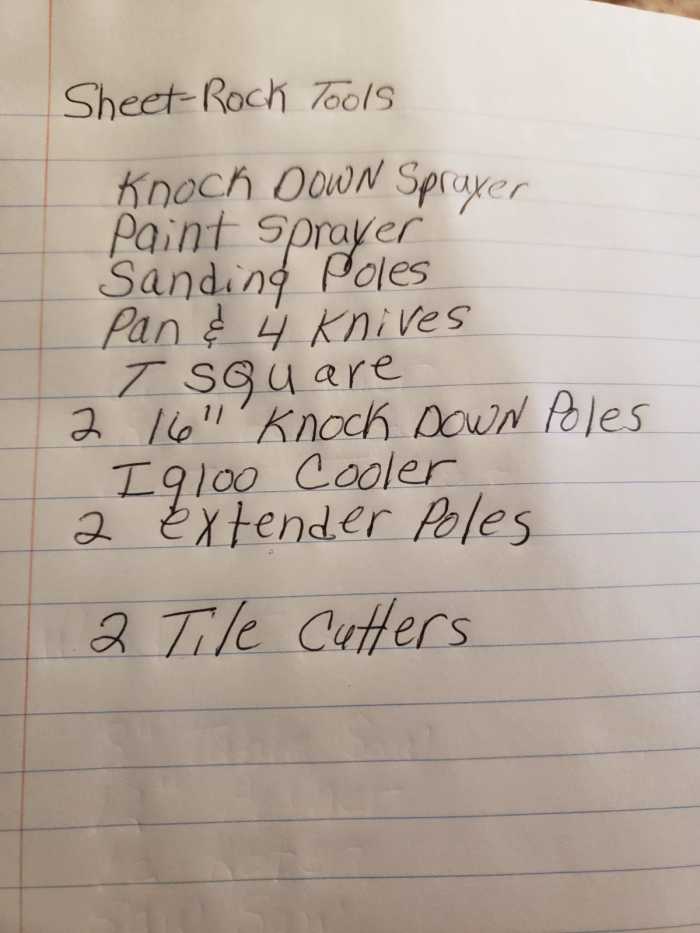 Sheet-Rock Tools
Knock Down Sprayer
Paint Sprayer
Sanding Poles
Pan & 4 Knives
T Square
2 16" Knock Down Poles
Igloo Cooler
2 extender Poles
2 Tile Cutters